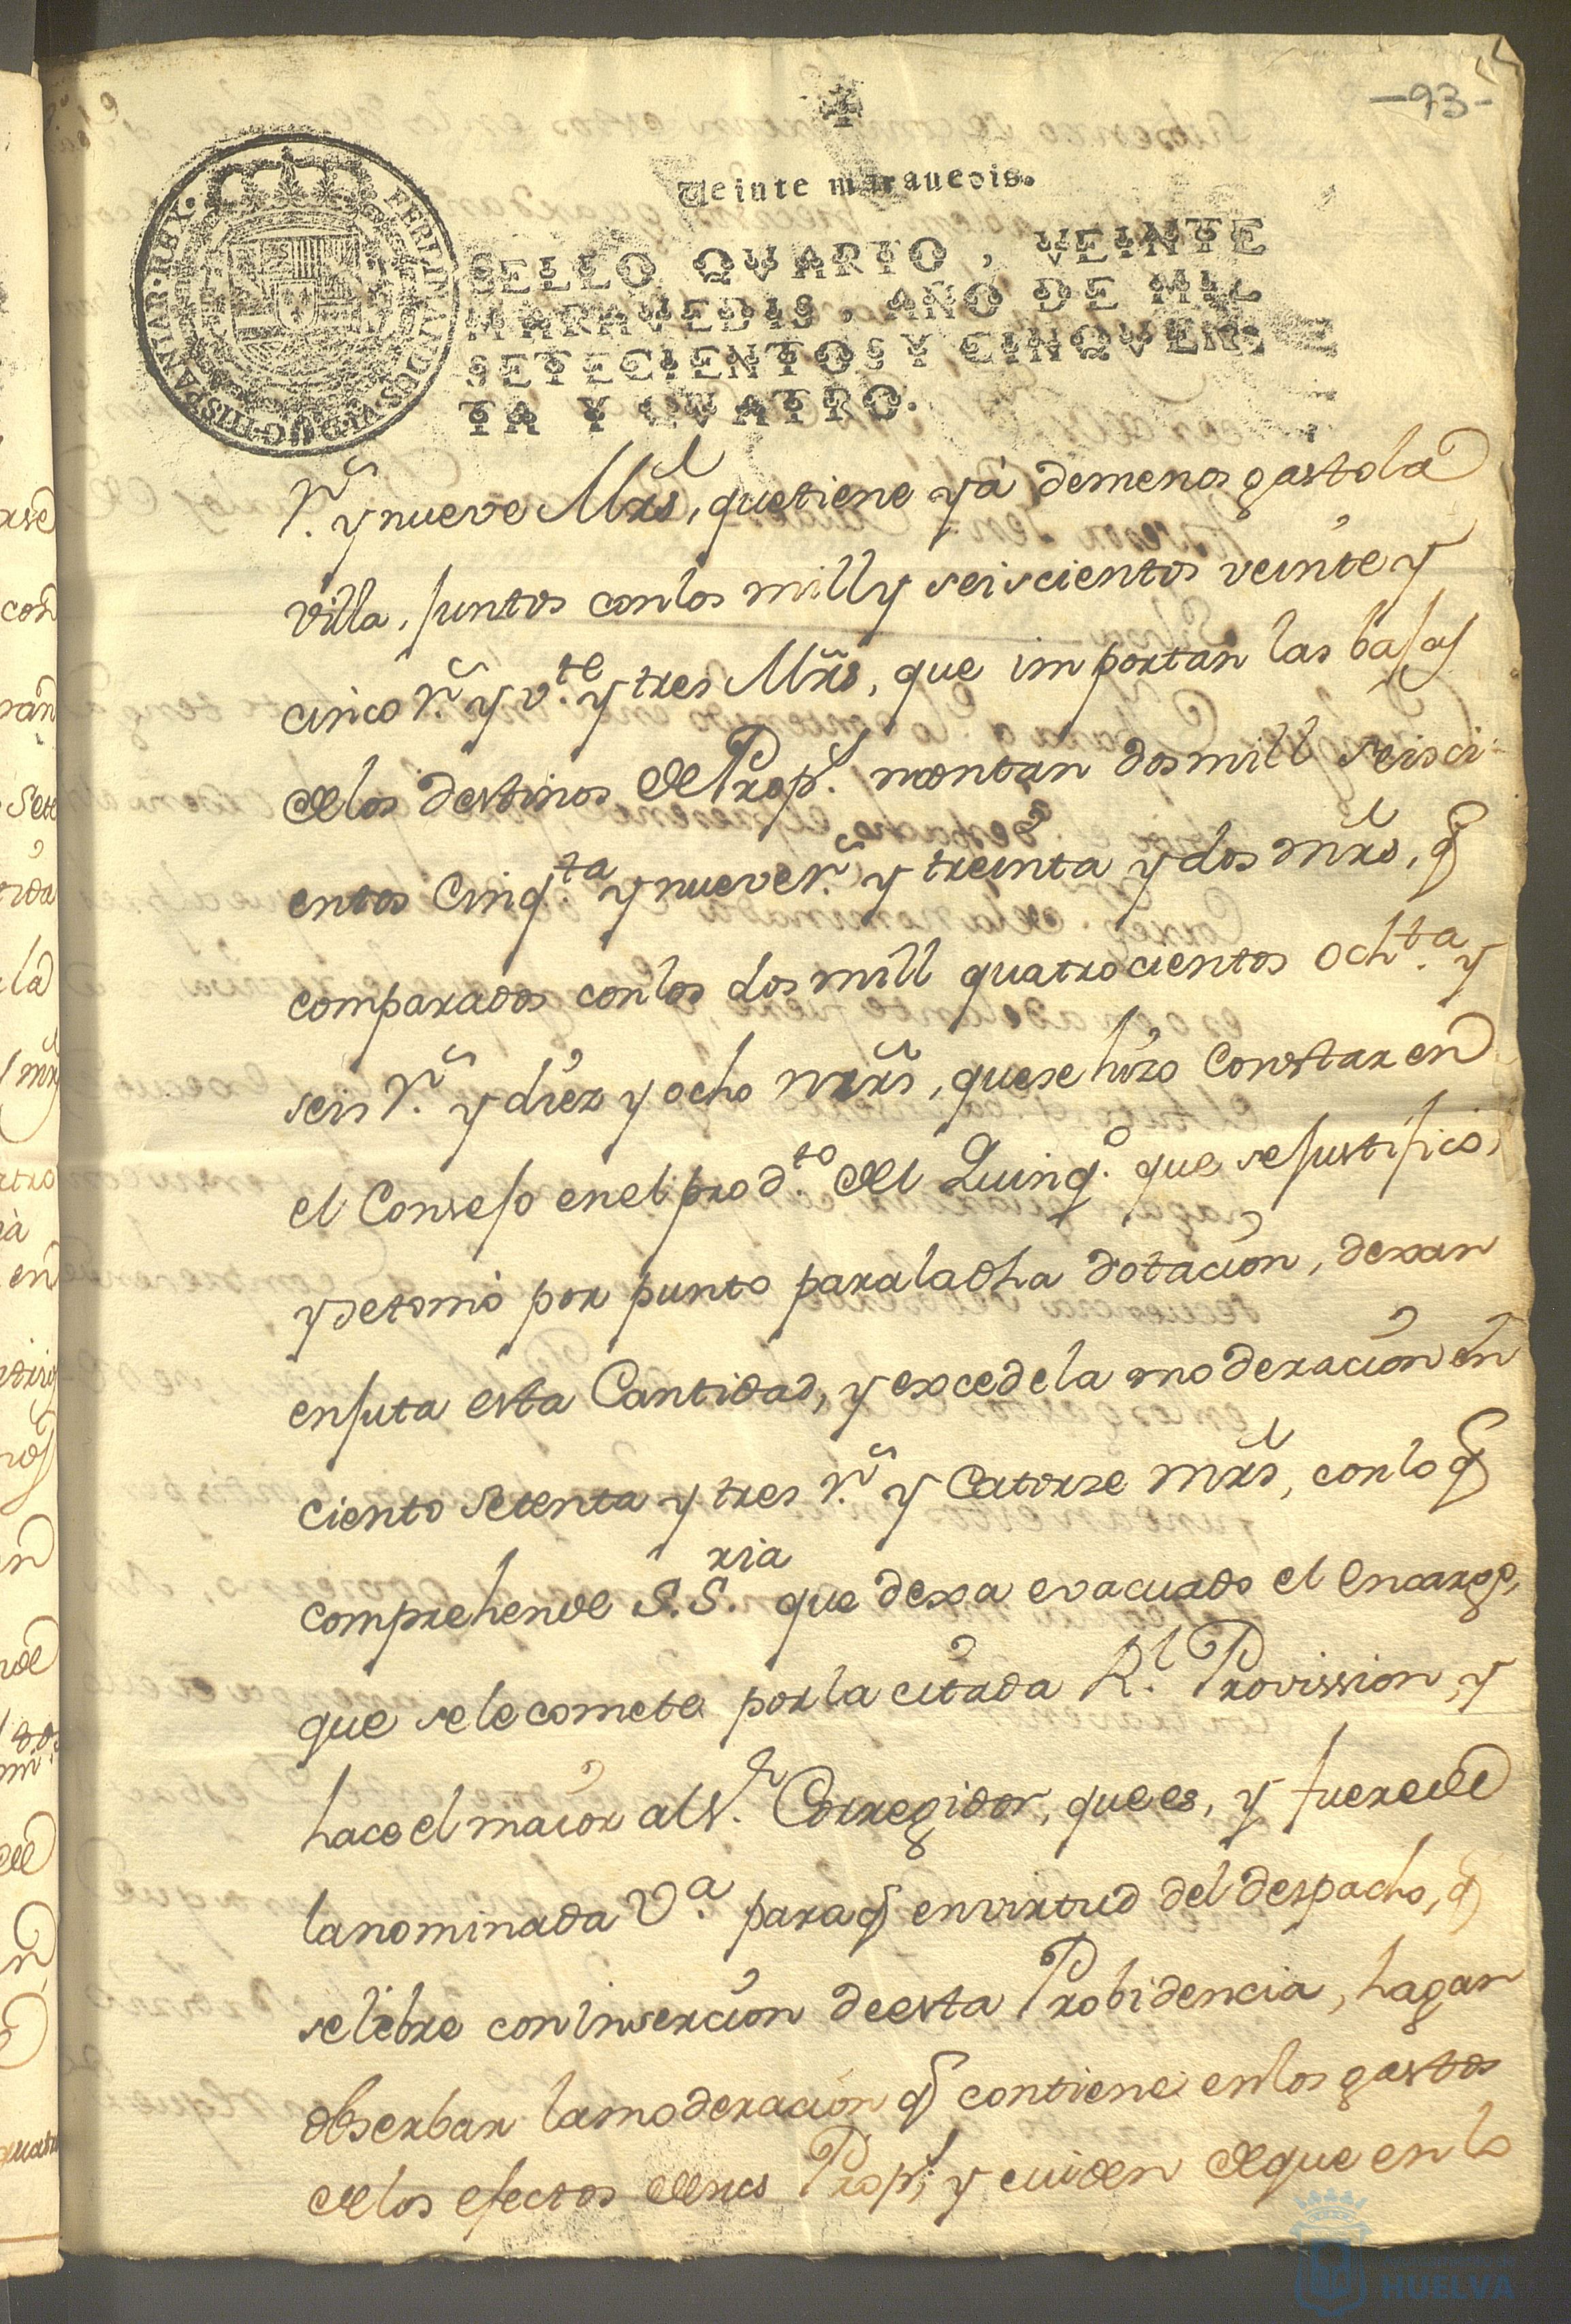 -93-
Veinte marauedis.
SELLO QVARTO, VEINTE
MARAVEDIS, AÑO DE MIL
SETECIENTOS Y CINQVEN-
TA Y QVATRO.
FERDINANDUS·VI·D·G·HISPANIAR·REX·
r.s y nueve Mrs, que tiene ya de menos gasto la
villa, juntos con los mill y seiscientos veinte y
cinco r.s y v.te y tres Mrs, que importan las bajas
de los destinos de Prop.s montan dos mill seisci-
entos Cinq.ta y nueve r.s y treinta y dos mrs, q
comparados con los dos mill quatrocientos och.ta y
seis r.s y diez y ocho mrs, que se hizo Constar en
el Consejo en el prod.to del Quinq.o que se justificó,
y se tomó por punto para la dha dotacion, dexan
enjuta esta Cantidad, y excede la moderacion en
ciento setenta y tres r.s y Catorze mrs, con lo q
comprehende S.S.ria que dexa evacuado el encargo,
que se le comete por la citada R.l Provission, y
hace el maior al S.r Corregidor, que es, y fuere de
la nominada V.a para q en virtud del despacho, q
se libre con insercion de esta Probidencia, hagan
obserbar la moderacion q contiene en los gastos
de los efectos de sus Prop.s, y cuiden de que en lo
HUELVA